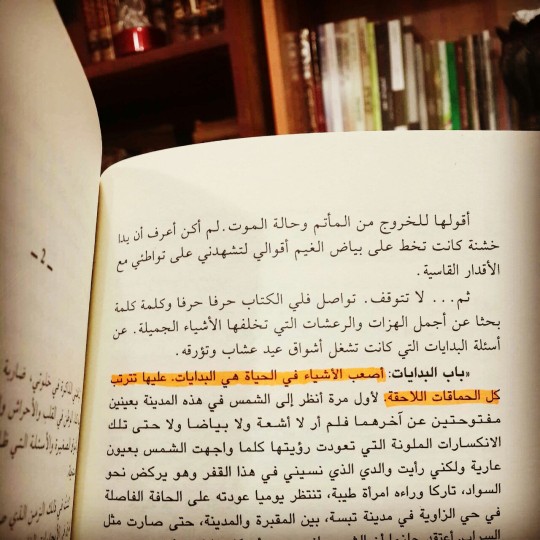 أقولها للخروج من المأتم وحالة الموت. لم أكن أعرف أن يدا
خشنة كانت تخط على بياض الغيم أقوالي لتشهدني على تواطئي مع
الأقدار القاسية.
ثم... لا تتوقف. تواصل فلي الكتاب حرفا حرفا وكلمة كلمة
بحثا عن أجمل الهزات والرعشات التي تخلفها الأشياء الجميلة. عن
أسئلة البدايات التي كانت تشغل أشواق عيد عشاب وتؤرقه.
«باب البدايات: أصعب الأشياء في الحياة هي البدايات. عليها تترتب
كل الحماقات اللاحقة: لأول مرة أنظر إلى الشمس في هذه المدينة بعينين
مفتوحتين عن آخرهما فلم أر لا أشعة ولا بياضا ولا حتى تلك
الانكسارات الملونة التي تعودت رؤيتها كلما واجهت الشمس بعيون
عارية ولكني رأيت والدي الذي نسيني في هذا القفر وهو يركض نحو
السواد، تاركا وراءه امرأة طيبة، تنتظر يوميا عودته على الحافة الفاصلة
في حي الزاوية في مدينة تبسة، بين المقبرة والمدينة، حتى صارت مثل
- 2 -